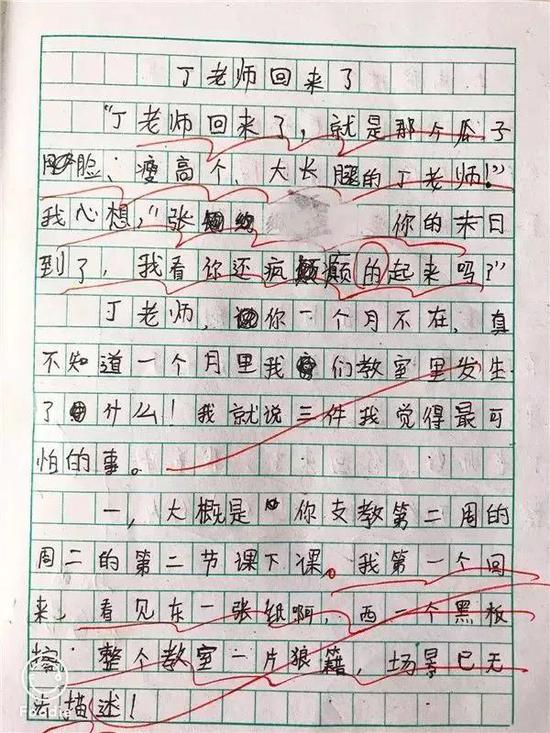 丁老师回来了
“丁老师回来了，就是那个瓜子
脸、瘦高个、大长腿的丁老师！”
我心想，“张 你的末日
到了，我看你还疯癫的起来吗？”
丁老师，你一个月不在，真
不知道一个月里我们教室里发生
了什么！我就说三件我觉得最可
怕的事。
一，大概是你支教第二周的
周二的第二节课下课。我第一个回
来，看见东一张纸啊，西一个黑板
擦，整个教室一片狼籍，场景已无
法描述！
Foodie